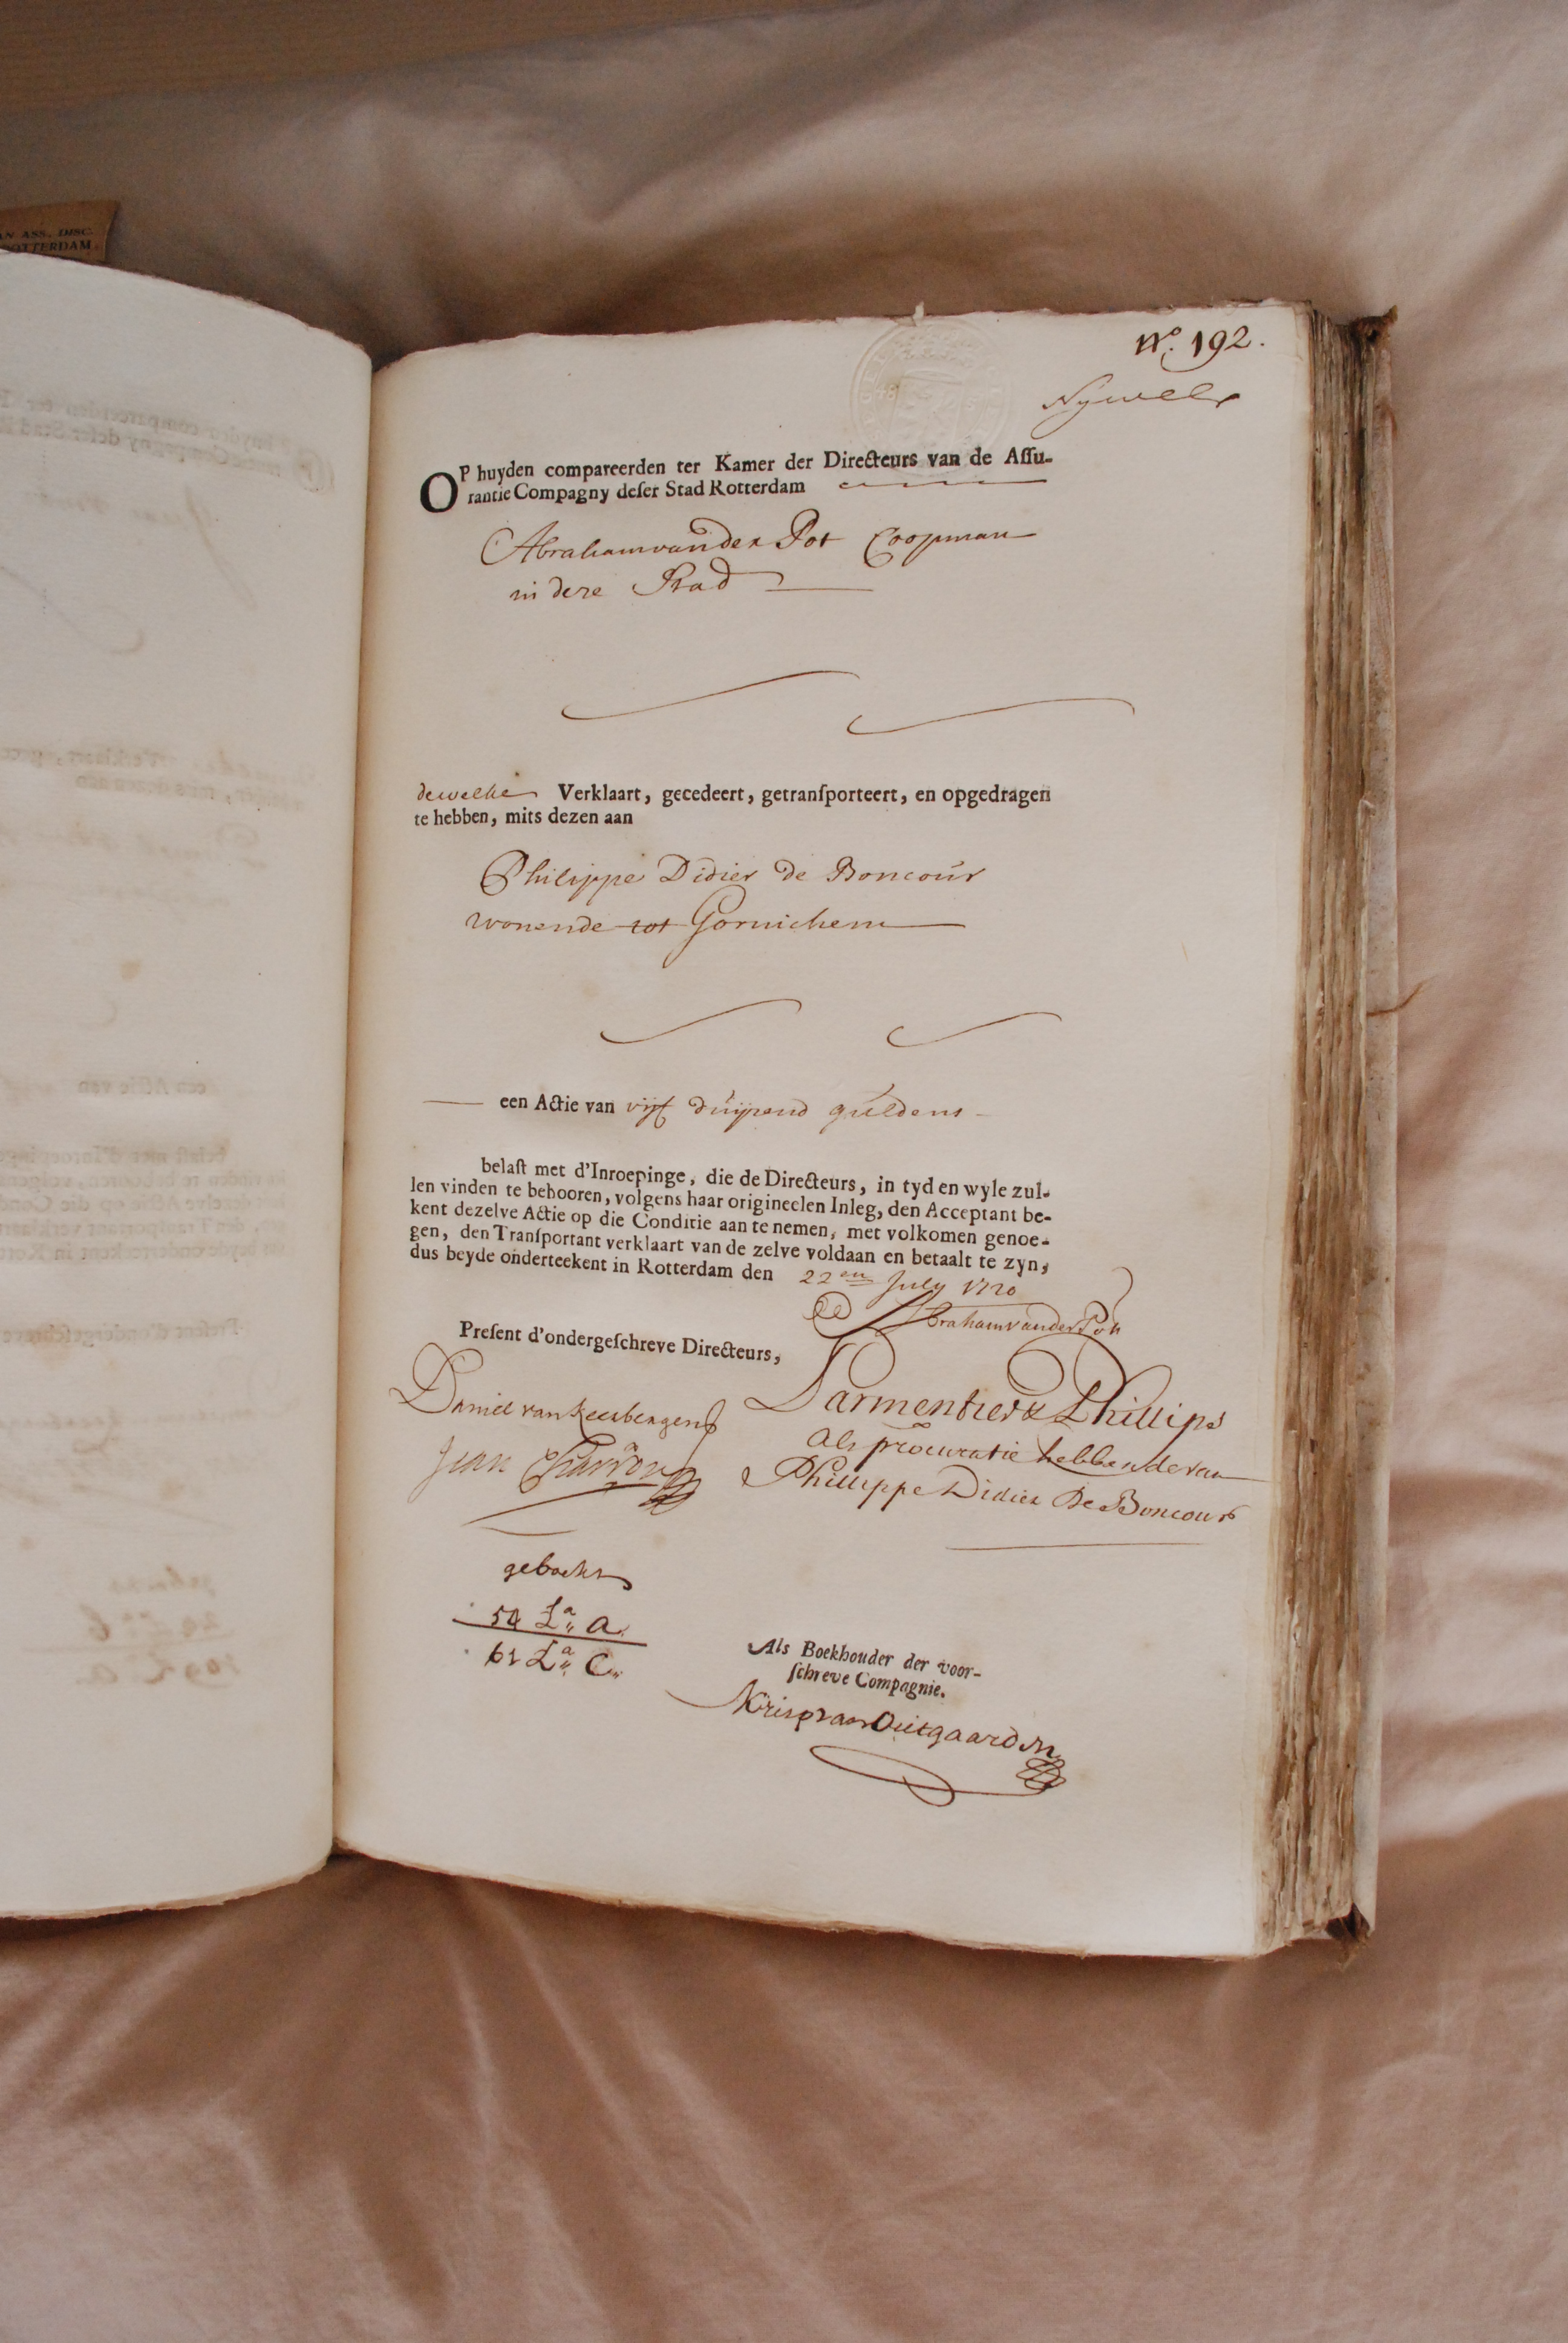 AN ASS. DISC.
ROTTERDAM.
No. 192.
OP huyden compareerden ter Kamer der Directeurs van de Assu-
rantie Compagny deser Stad Rotterdam
Abraham van der Pot Coopman
in deze Stad
dewelke Verklaart, gecedeert, getransporteert, en opgedragen
te hebben, mits dezen aan
Philippe Didier de Boncour
wonende tot Gornichem
een Actie van vijf duijsend guldens
belast met d'Inroepinge, die de Directeurs, in tyd en wyle zul-
len vinden te behooren, volgens haar origineelen Inleg, den Acceptant be-
kent dezelve Actie op die Conditie aan te nemen, met volkomen genoe-
gen, den Transportant verklaart van de zelve voldaan en betaalt te zyn,
dus beyde onderteekent in Rotterdam den 22en July 1720
Abraham van der Pot
Present d'ondergeschreve Directeurs,
Daniel van
Parmentier & Phillips
Jean
Als procuratie hebbende van
Phillippe Didier De Boncour
geboekt
54 La A.
61 La C.
Als Boekhouder der voor-
schreve Compagnie.